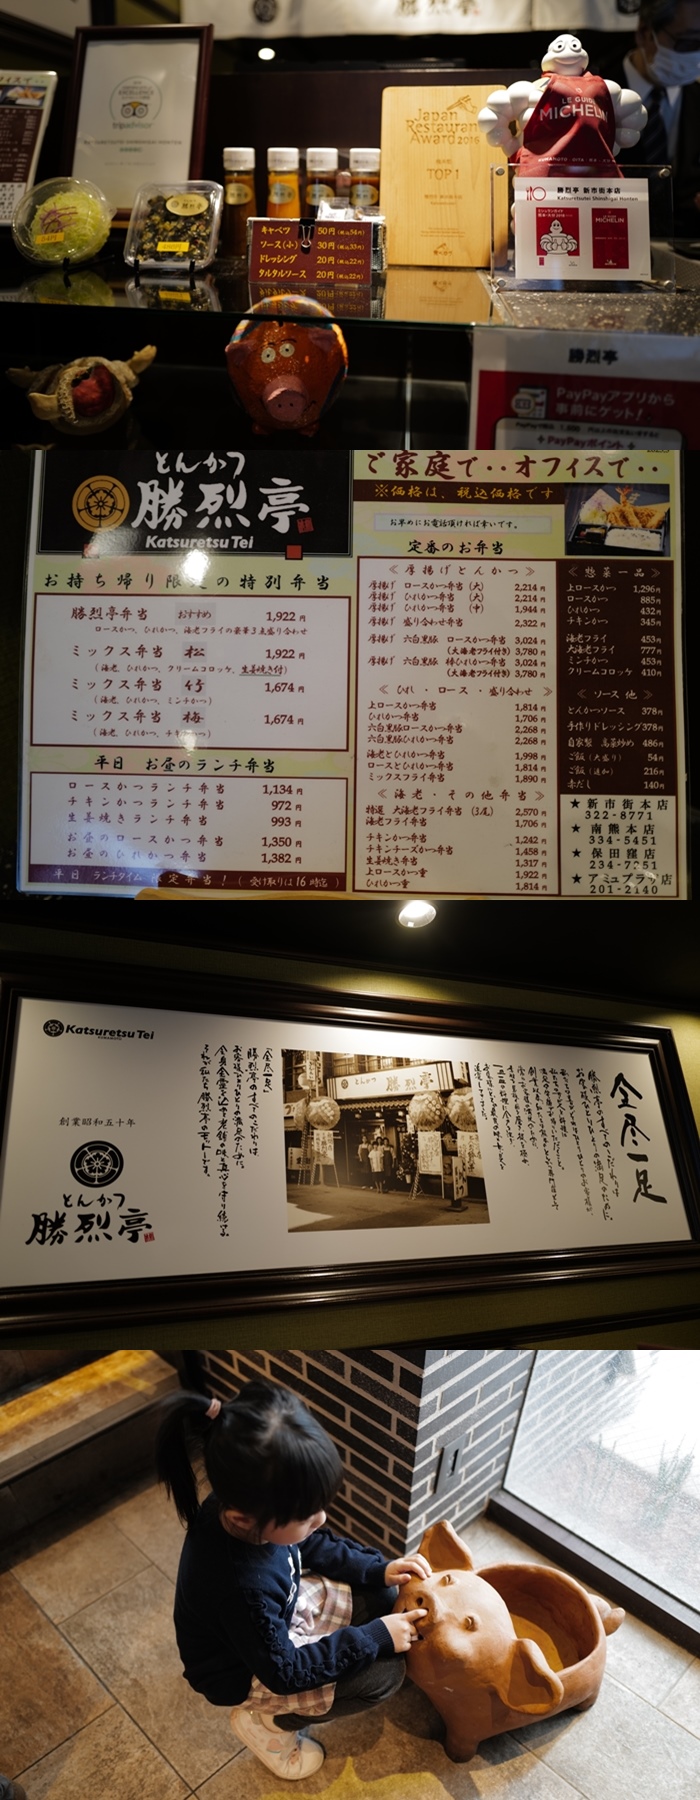 勝烈亭
tripadvisor
Japan
Restaurant
Award 2016
TOP 1
LE GUIDE
MICHELIN
勝烈亭 新市街本店
Katsuretsutei Shinshigai Honten
MICHELIN
キャベツ 50円(税込54円)
ソース(小) 30円(税込33円)
ドレッシング 20円(税込22円)
タルタルソース 20円(税込22円)
勝烈亭
PayPayアプリから
事前にゲット!
PayPayポイント
とんかつ
勝烈亭
Katsuretsu Tei
お持ち帰り限定の特別弁当
勝烈亭弁当 おすすめ 1,922円
ロースかつ、ひれかつ、海老フライの豪華3点盛り合わせ
ミックス弁当 松 1,922円
(海老、ひれかつ、クリームコロッケ、生姜焼き付)
ミックス弁当 竹 1,674円
(海老、ひれかつ、ミンチかつ)
ミックス弁当 梅 1,674円
(海老、ひれかつ、チキンかつ)
平日 お昼のランチ弁当
ロースかつランチ弁当 1,134円
チキンかつランチ弁当 972円
生姜焼きランチ弁当 993円
お昼のロースかつ弁当 1,350円
お昼のひれかつ弁当 1,382円
平日 ランチタイム限定弁当!(受け取りは16時迄)
ご家庭で‥オフィスで‥
※価格は、税込価格です
お早めにお電話頂ければ幸いです。
定番のお弁当
≪厚揚げとんかつ≫
厚揚げ ロースかつ弁当(大) 2,214円
厚揚げ ひれかつ弁当(大) 2,214円
厚揚げ ひれかつ弁当(中) 1,944円
厚揚げ 盛り合わせ弁当 2,322円
厚揚げ 六白黒豚 ロースかつ弁当 3,024円
(大海老フライ付き) 3,780円
厚揚げ 六白黒豚 特ひれかつ弁当 3,024円
(大海老フライ付き) 3,780円
≪ひれ・ロース・盛り合わせ≫
上ロースかつ弁当 1,814円
ひれかつ弁当 1,706円
六白黒豚ロースかつ弁当 2,268円
六白黒豚ひれかつ弁当 2,268円
海老とひれかつ弁当 1,998円
ロースとひれかつ弁当 1,814円
ミックスフライ弁当 1,890円
≪海老・その他弁当≫
特選 大海老フライ弁当(3尾) 2,570円
海老フライ弁当 1,706円
チキンかつ弁当 1,242円
チキンチーズかつ弁当 1,458円
生姜焼き弁当 1,317円
上ロースかつ重 1,922円
ひれかつ重 1,814円
≪惣菜一品≫
上ロースかつ 1,296円
ロースかつ 885円
ひれかつ 432円
チキンかつ 345円
海老フライ 453円
大海老フライ 777円
ミンチかつ 453円
クリームコロッケ 410円
≪ソース他≫
とんかつソース 378円
手作りドレッシング 378円
自家製 高菜炒め 486円
ご飯(大盛り) 54円
ご飯(追加) 216円
赤だし 140円
★新市街本店
322-8771
★南熊本店
334-5451
★保田窪店
234-7251
★アミュプラザ店
201-2140
Katsuretsu Tei
創業昭和五十年
とんかつ
勝烈亭
全尽一足
勝烈亭のすべてのこだわりは
お客様ひとりひとりの満足のために。
「全尽一足」
勝烈亭のすべてのこだわりは
お客様ひとりひとりの満足のために。
全身全霊を込めて老舗の味と真心を守り続ける。
それが私たち勝烈亭のモットーです。
とんかつ 勝烈亭